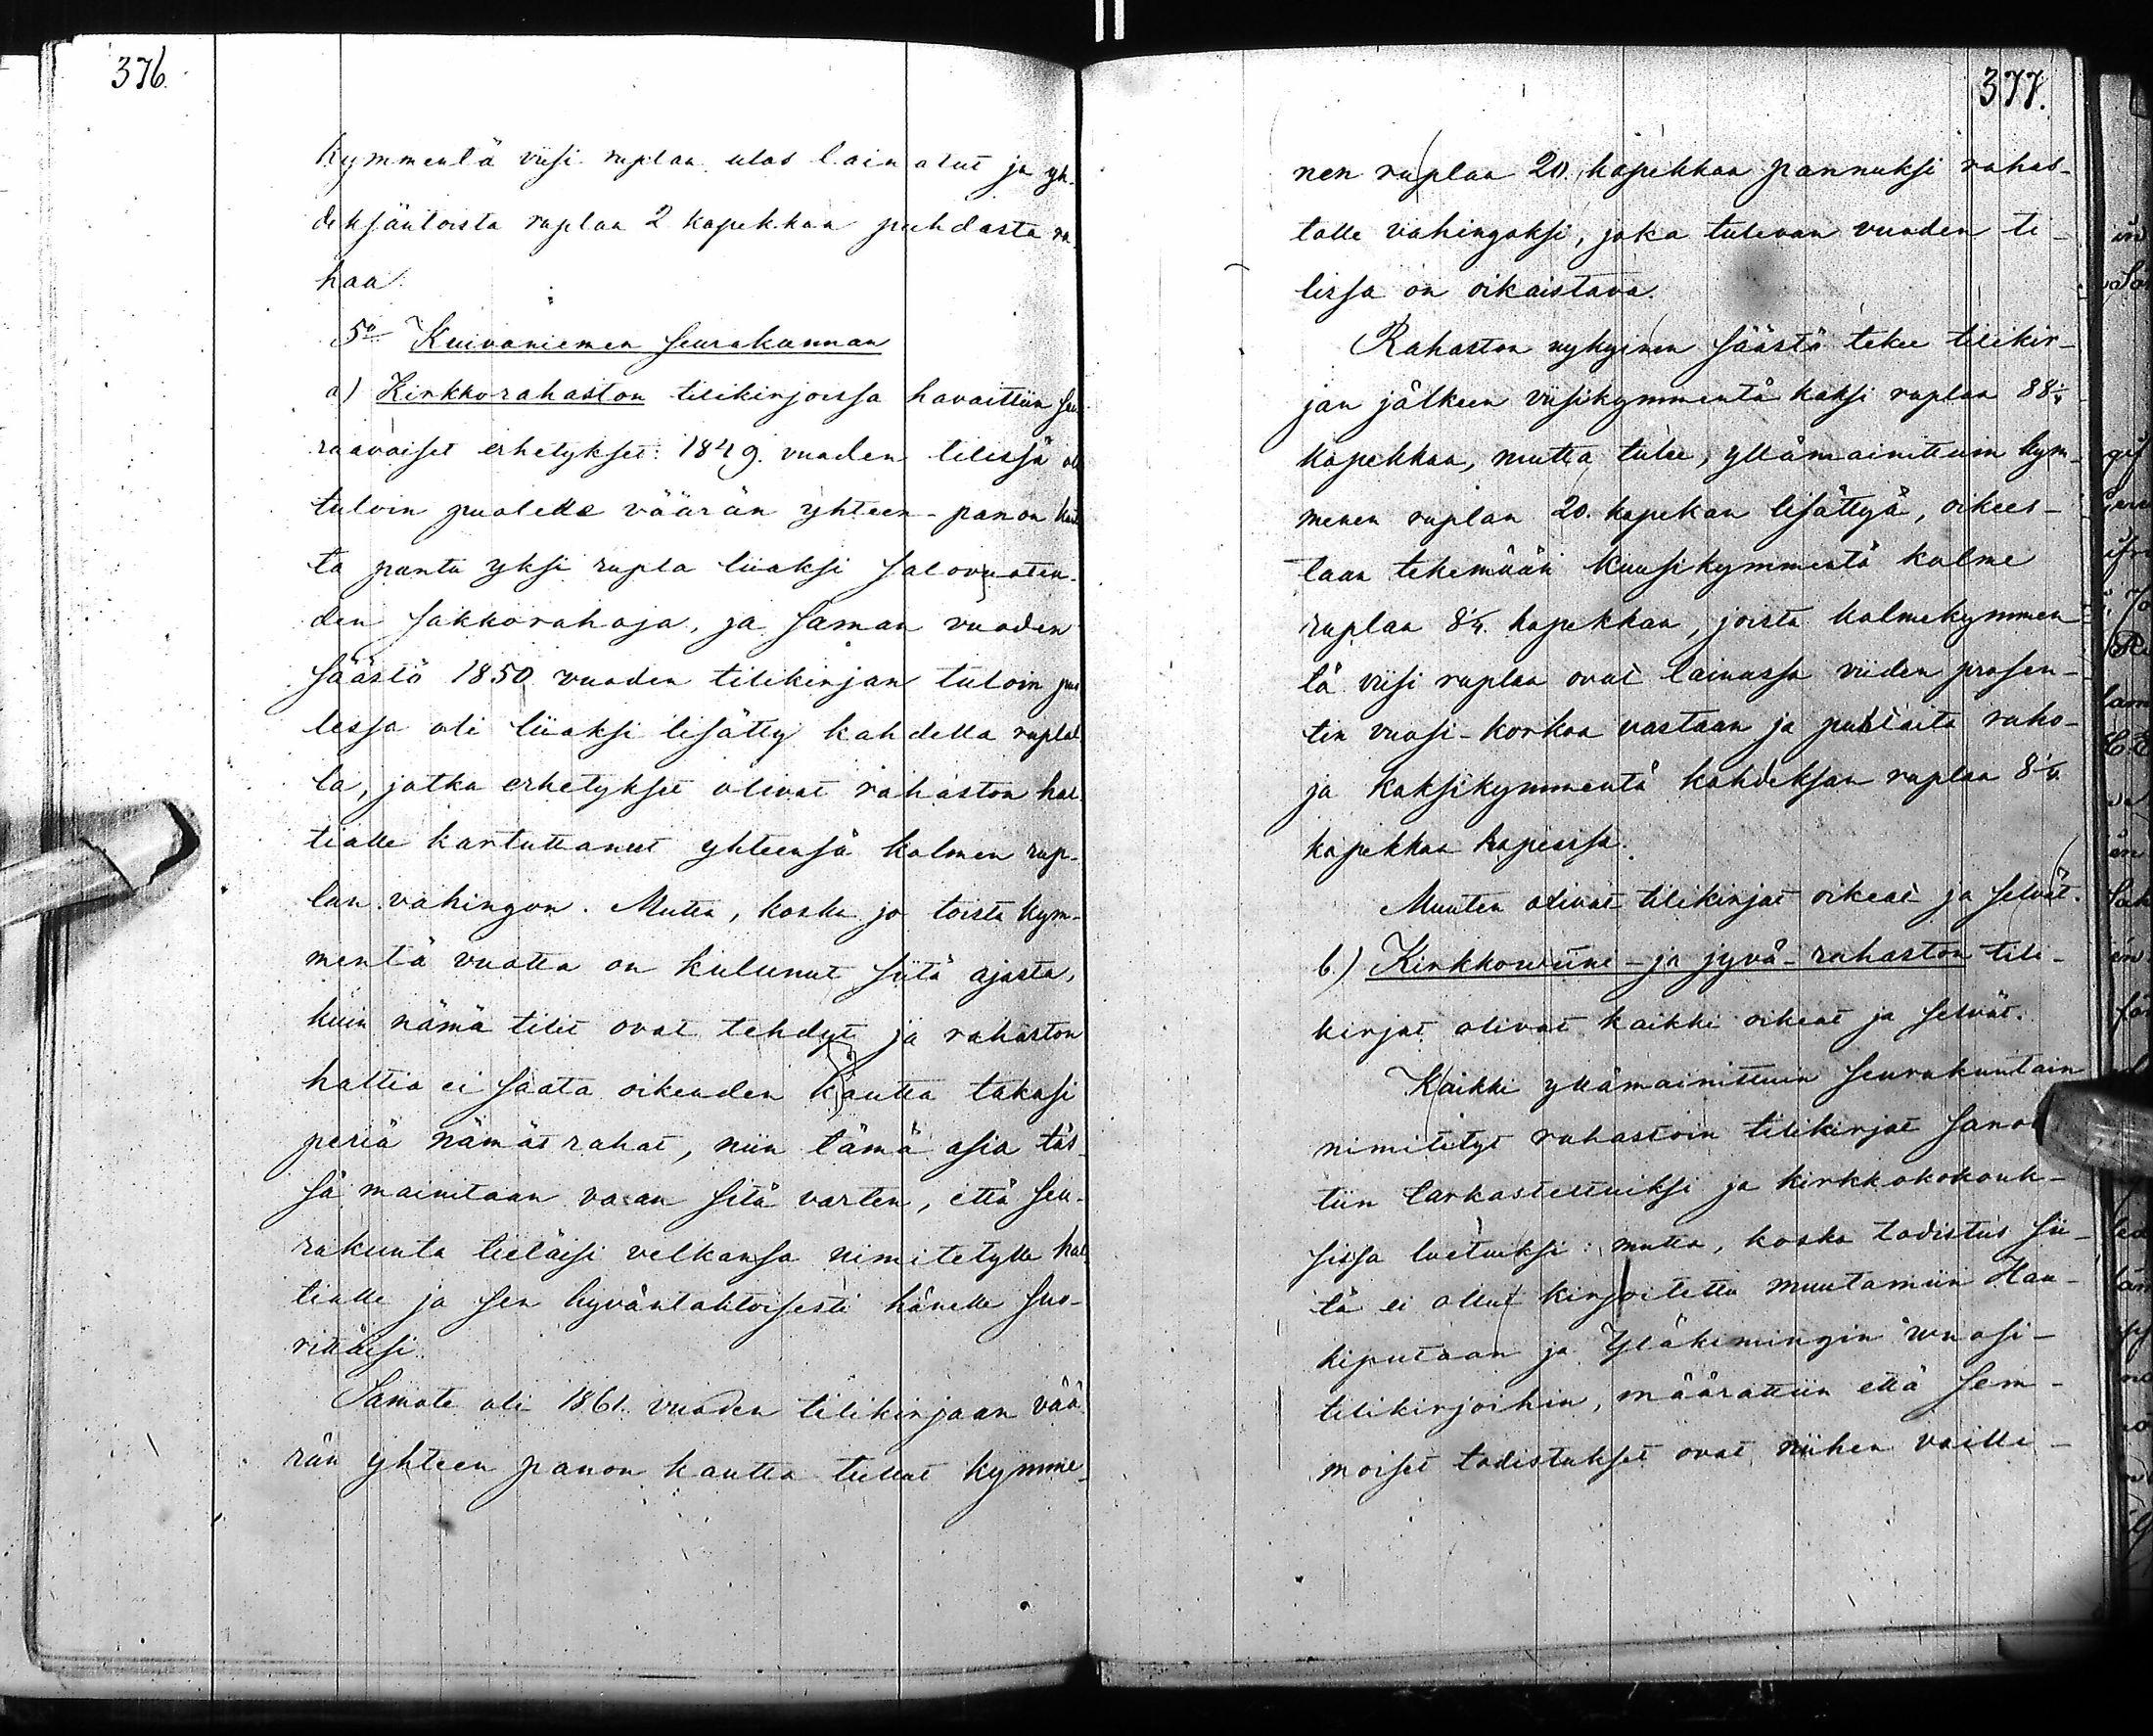 376.
kymmentä viisi ruplaa ulos lainatut ja yh-
deksäntoista ruplaa 2 kopekkaa puhdasta ra-
haa.
5o Kuivaniemen seurakunnan
a) Kirkkorahaston tilikirjoissa havaittiin seu-
raavaiset erhetykset: 1849. vuoden tilissä oli
tuloin puolella väärän yhteen-panon kaut-
ta pantu yksi rupla liiaksi
den sakkorahoja, ja saman vuoden
säästö 1850 vuoden tilikirjan tuloin puo-
lessa oli liiaksi lisätty kahdella ruplal-
la, jotka erhetykset olivat rahaston hal-
tialle kartuttanut yhteensä kolmen rup-
lan vahingon. Mutta, koska jo toista kym-
mentä vuotta on kulunut siitä ajasta,
kuin nämä tilit ovat tehdyt ja rahaston
haltia ei saata oikeuden kautta takasi
periä nämät rahat, niin tämä asia täs-
sä mainitaan vaan sitä varten, että seu-
rakunta tietäisi velkansa nimitetylle hal-
tialle ja sen hyväntahtoisesti hänelle suo-
rittäisi.
Samate oli 1861. vuoden tilikirjaan vää-
rän yhteen panon kautta tullut kymme-
377.
nen ruplaa 20. kopekkaa pannuksi rahas-
tolle vahingoksi, joka tulevan vuoden ti-
lissä on oikaistava.
Rahaston nykyinen säästö tekee tilikir-
jan jälkeen viisikymmentä kaksi ruplaa 88¼
kopekkaa, mutta tulee, yllämainittuin kym-
menen ruplan 20. kopekan lisättyä, oikees-
taan tekemään kuusikymmentä kolme
ruplaa 8¼. kopekkaa, joista kolmekymmen-
tä viisi ruplaa ovat lainassa viiden prosen-
tin vuosi-korkoa vastaan ja puhtaita raho-
ja kaksikymmentä kahdeksan ruplaa 8¼
kopekkaa kapeissa.
Muuten olivat tilikirjat oikeat ja selvät.
b.) Kirkkowiini-ja jyvä-rahaston tili-
kirjat olivat kaikki oikeat ja selvät.
Kaikki yllämainittuin seurakuntain
nimitetyt rahastoin tilikirjat sanot-
tiin tarkastettuiksi ja kirkkokokouk-
sissa luetuiksi: mutta, koska todistus sii-
tä ei ollut kirjoitettu muutamiin Hau-
kiputaan ja Yläkimingin wuosi-
tilikirjoihin, määrättiin että sem-
moiset todistukset ovat niihen vailli-